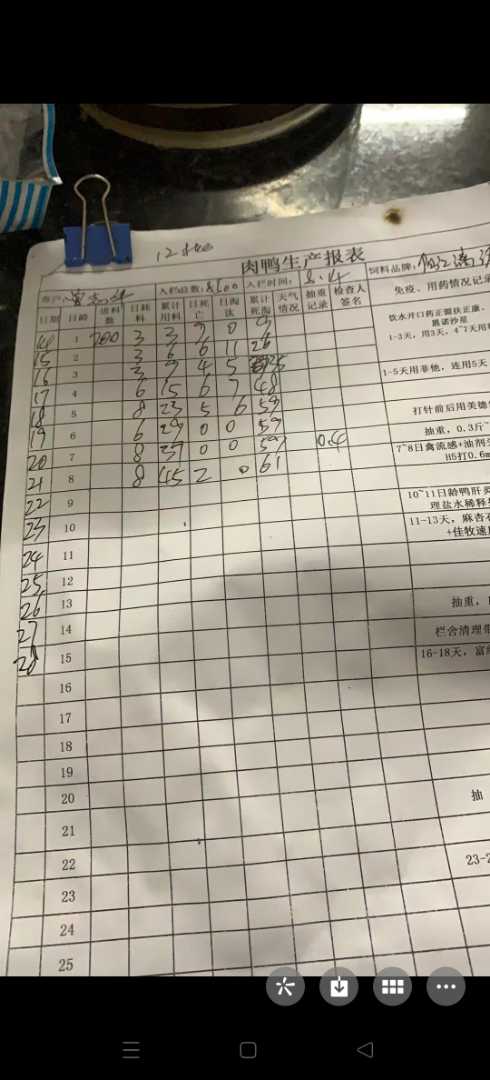 肉鸭生产报表
入栏总数: 8600 入栏时间: 8.14 饲料品牌:
日期 日龄 进料数 日耗料 累计用料 日死亡 日淘汰 累计死淘 天气情况 抽重记录 检查人签名 免疫、用药情况记录
1 200 3 3 9 0 9
15 2 3 6 6 11 26
16 3 3 9 4 5
17 4 6 15 6 7 48
18 5 8 23 5 6 59
19 6 6 29 0 0 59
20 7 8 37 0 0 59 0.4
21 8 8 45 2 0 61
22 9
23 10
24 11
25 12
26 13
27 14
28 15
16
17
18
19
20
21
22
23
24
25
1-3天，用3天，4~7天用
1-5天用菲他，连用5天
打针前后用美德
抽重，0.3斤~
7~8日禽流感+油剂
H5打0.6m
10~11日龄鸭肝炎
理盐水稀释
11-13天，麻杏
+佳牧速
抽重，
栏舍清理
16-18天，富
抽
23-2